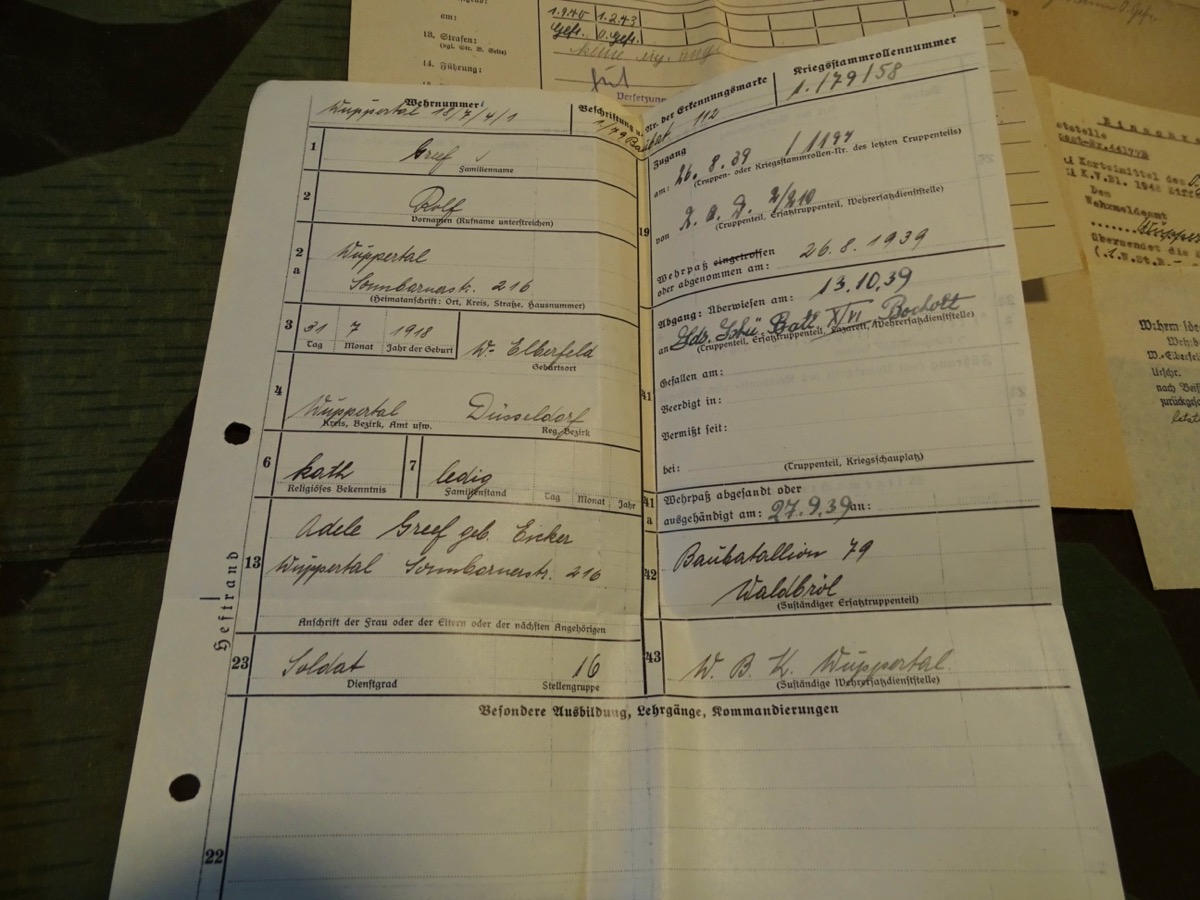 am:
13. Strafen:
(vgl. Str. B. Seite)
14. Führung:
1.9.40 1.2.43
Gefr. O.Gefr.
gut
Versetzung
Wehrnummer:
Wuppertal 18/7/4/1
Beschriftung u. Nr. der Erkennungsmarke
1/79 112
Kriegsstammrollennummer
1./79/58
1
Greef
Familienname
2
Rolf
Vornamen (Rufname unterstreichen)
2a
Wuppertal
Sonnbornerstr. 216
(Heimatanschrift: Ort, Kreis, Straße, Hausnummer)
3
31 7 1918
Tag Monat Jahr der Geburt
W.-Elberfeld
Geburtsort
4
Wuppertal Düsseldorf
Kreis, Bezirk, Amt usw. Reg. Bezirk
6
kath
Religiöses Bekenntnis
7
ledig
Familienstand Tag Monat Jahr
13
Adele Greef geb. Eicker
Wuppertal Sonnbornerstr. 216
Anschrift der Frau oder der Eltern oder der nächsten Angehörigen
23
Soldat 16
Dienstgrad Stellengruppe
19
Zugang
am: 26.8.39 / 1197
(Truppen- oder Kriegsstammrollen-Nr. des letzten Truppenteils)
von R.A.D. 2/210
(Truppenteil, Ersatztruppenteil, Wehrersatzdienststelle)
Wehrpaß eingetroffen
oder abgenommen am: 26.8.1939
41
Abgang: Überwiesen am: 13.10.39
an Lds. Schü. Batl. XI/VI Bocholt
(Truppenteil, Ersatztruppenteil, Lazarett, Wehrersatzdienststelle)
Gefallen am:
Beerdigt in:
Vermißt seit:
bei: (Truppenteil, Kriegsschauplatz)
41a
Wehrpaß abgesandt oder
ausgehändigt am: 27.9.39 an:
42
Baubatallion 79
Waldbröl
(Zuständiger Ersatztruppenteil)
43
W. B. K. Wuppertal.
(Zuständige Wehrersatzdienststelle)
Besondere Ausbildung, Lehrgänge, Kommandierungen
22
Heftrand
Kartsimittel des
K.V.Bl. 1942
Den
Wehrmeldeamt
übersendet die